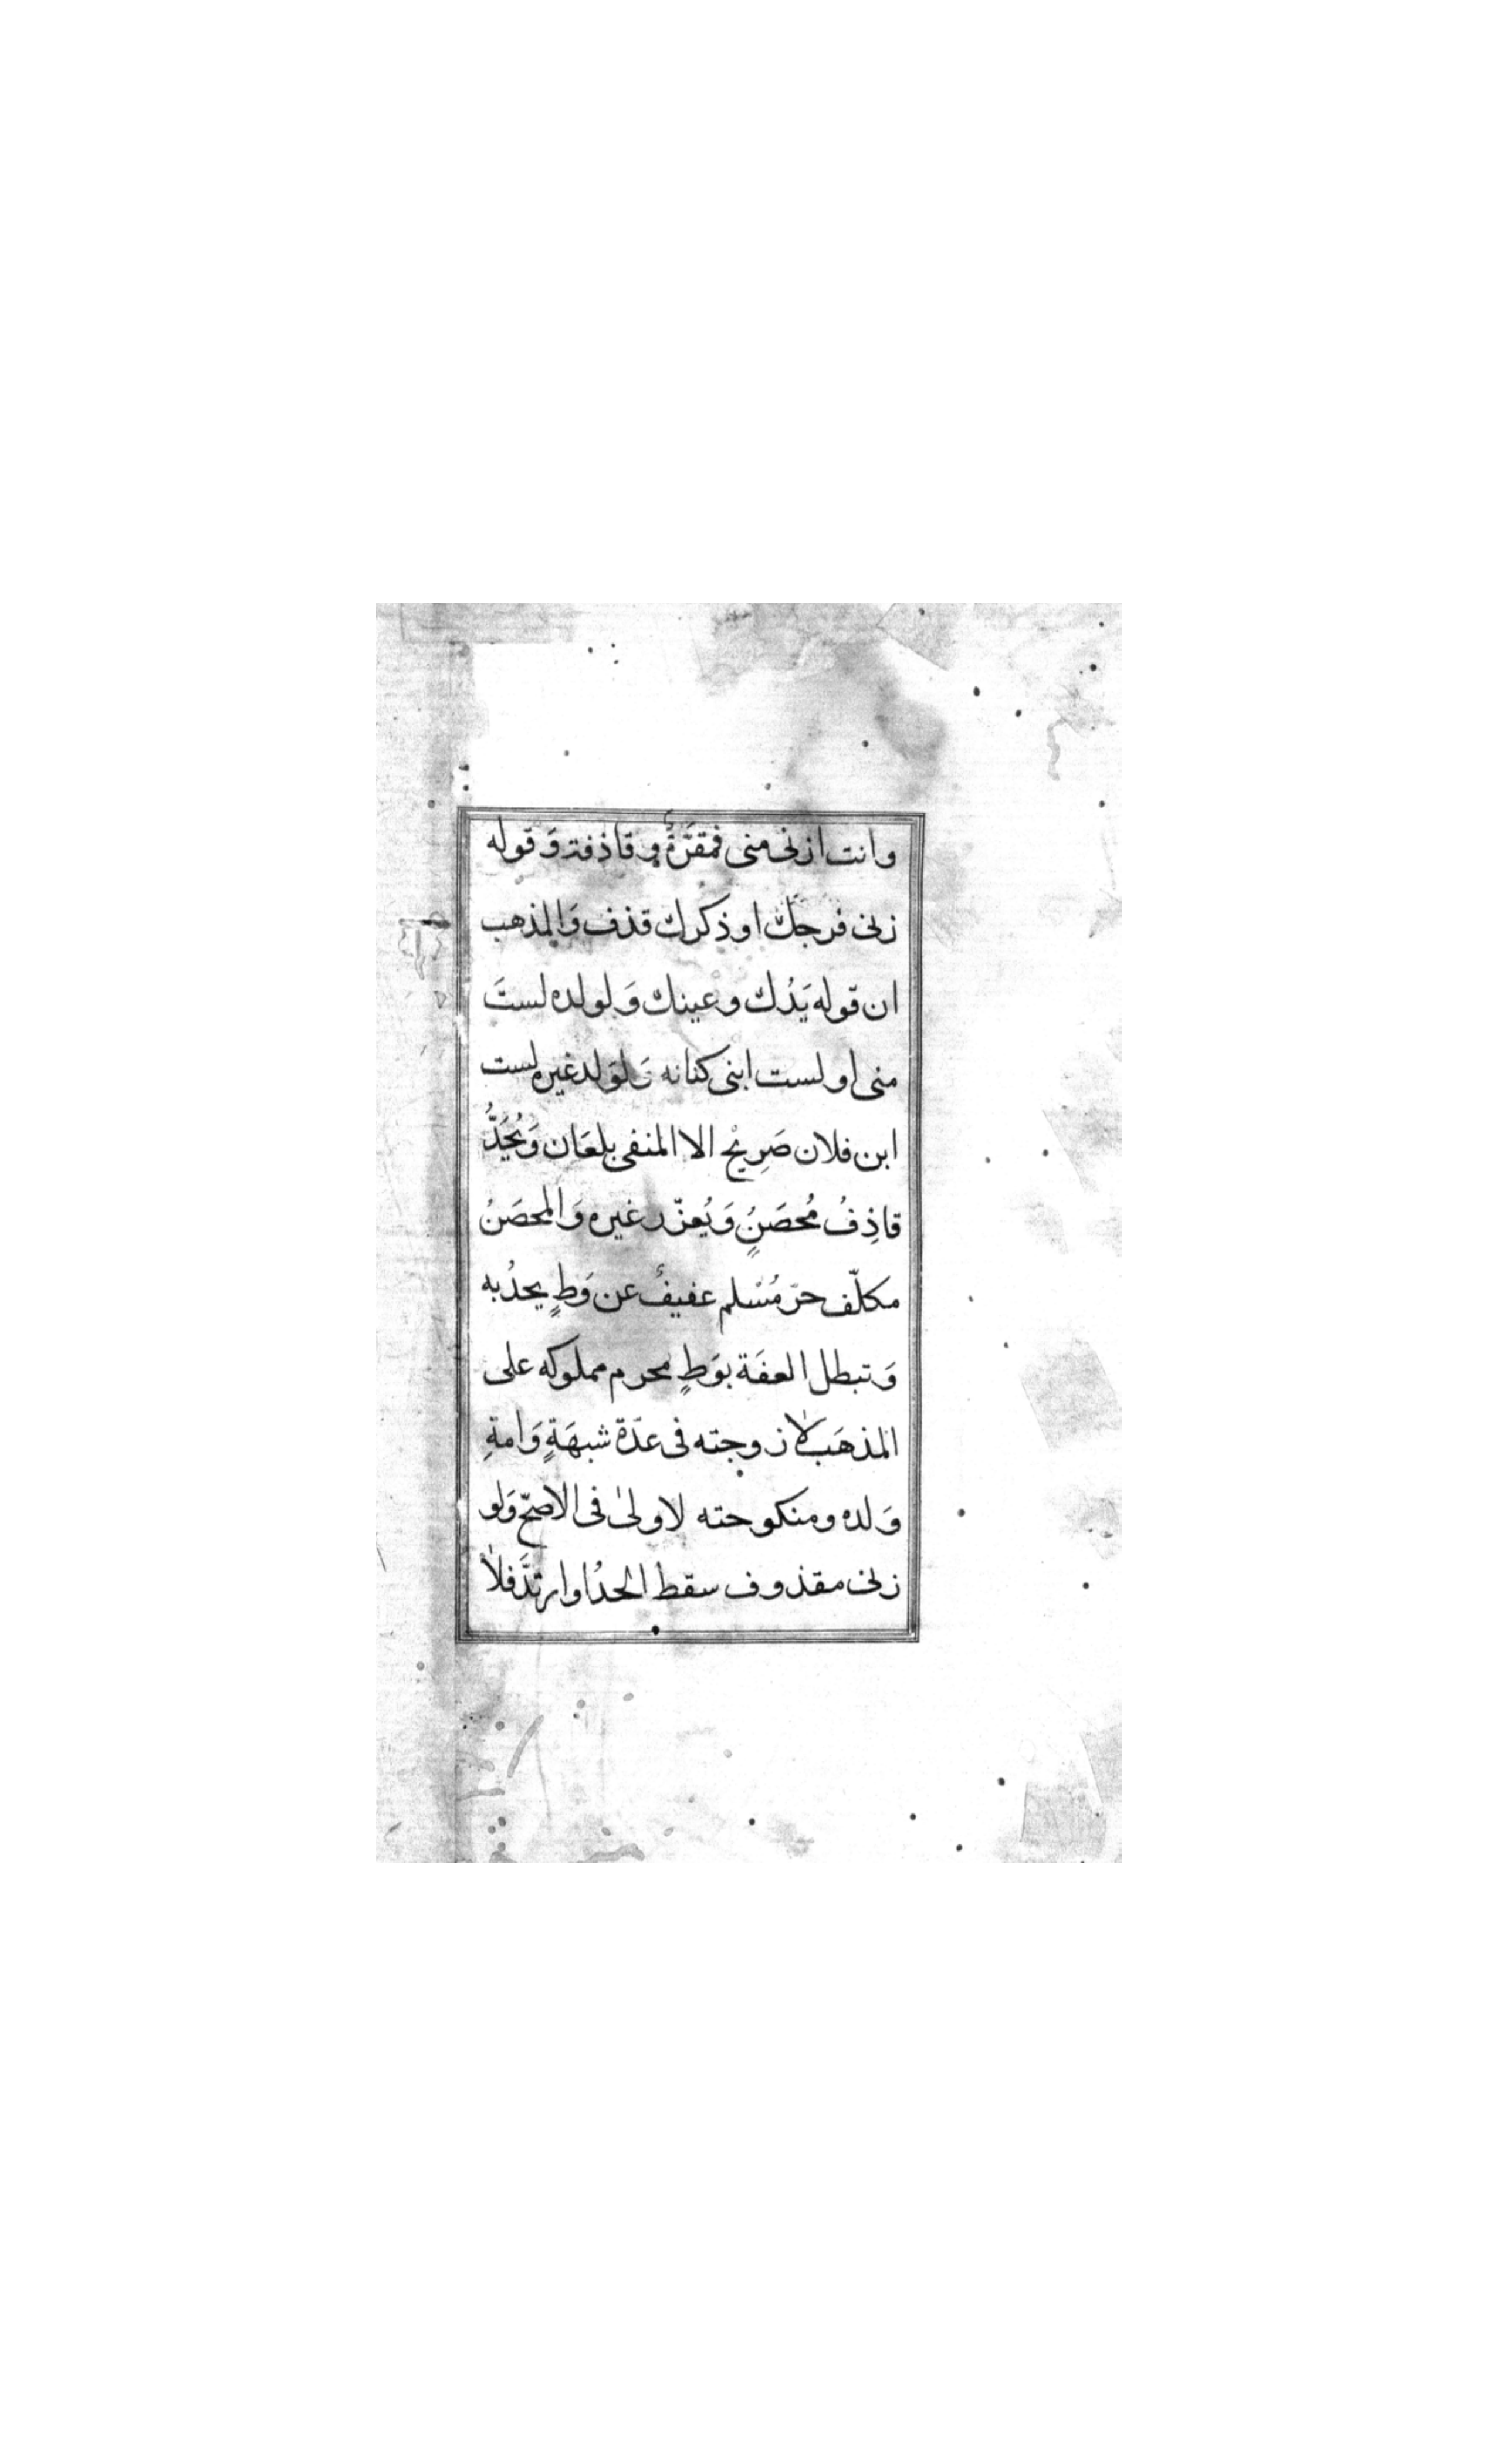 وانت ازنى منى فمقرّةٌ وقاذفة وَقوله
زنى فرجك اوذكرك قذف وَالمذهب
ان قوله يَدُك وعينك وَلولده لستَ
منى او لست ابنى كنانه وَلوَلد غيره لست
ابن فلان صَرِيْح الا المنفى بلعَان وَيُحَدُّ
قاذِفُ مُحصَنٍ وَيُعزّر غيره وَالمحصَنُ
مكلّف حرّ مُسْلم عفيفٌ عن وَطٍ يحدُ به
وَتبطل العفَة بوَطٍ محرم مملوكه على
المذهَب لا زوجته فى عدّة شبهَةٍ وَامةِ
وَلده ومنكوحته لاولى فى الاصحّ وَلو
زنى مقذوف سقط الحدُ اوارتدَّ فلا